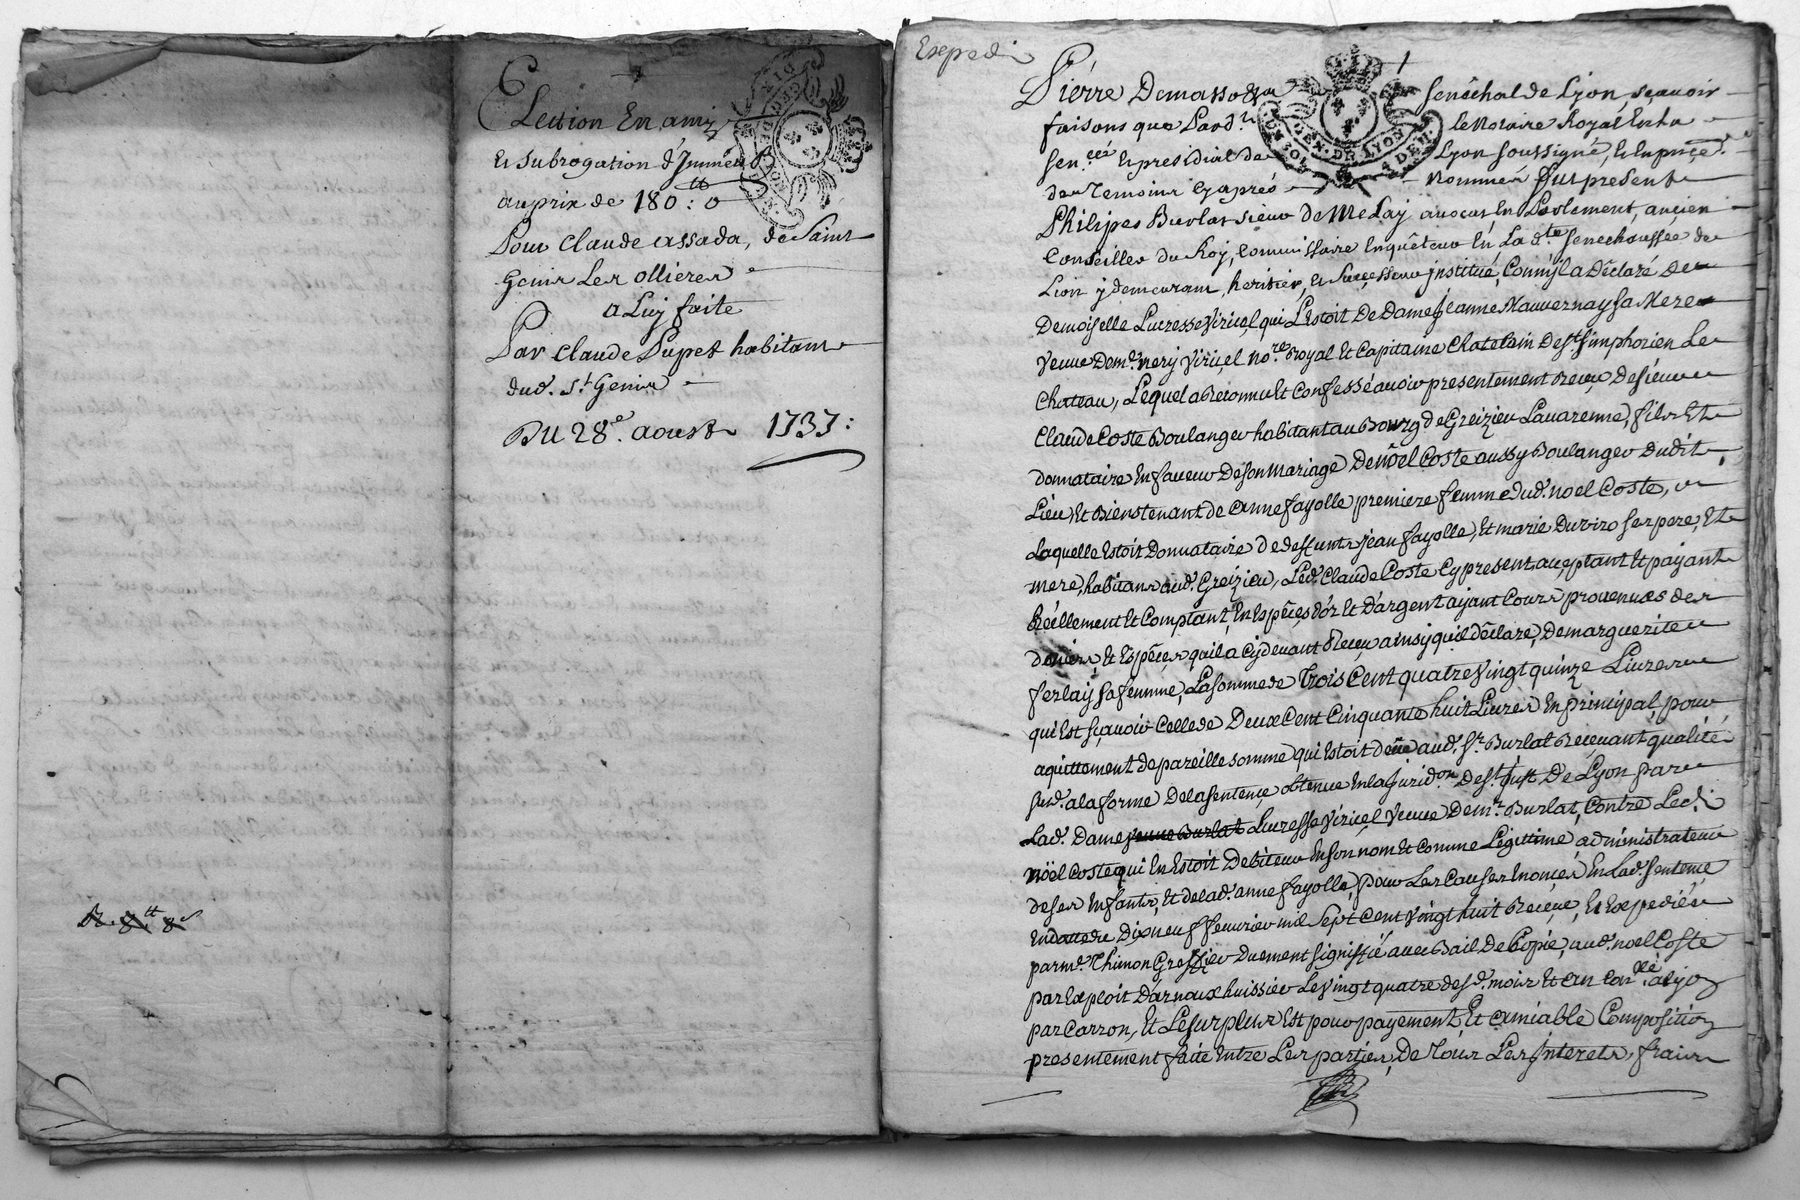 Election En amy
Et subrogation d'Immeub
au prix de 180 tt : 0
Pour Claude assada, de Saint
Genis Les ollieres
a Luy faite
Par Claude Pupet habitant
dud. St Genis
Du 28e. aoust 1737 :
GEN. DE LYON
Exepedi
Pierre Demasso senéchal de Lyon, sçavoir
faisons que Pard.t le Notaire Royal En la
sen.cée Et presidial de Lyon soussigné, Et En pnçe
des Temoins Cy aprés Nommés fut present
Philipes Burlat sieur de Melay avocat En Parlement, ancien
Conseiller du Roy, Commissaire Enquêteur En La d.te senechaussée de
Lion y demeurant, heritier, Et Successeur institué, Comm'jl a Déclaré De
Demoiselle Lucresse Viriçel, qui L'estoit De Dame Jeanne Mauvernay sa Mere
Veuve De m.e mery Viriçel No.re Royal Et Capitaine Chatelain De St. Simphorien Le
Chateau, Lequel a Reconnu Et Confessé avoir presentement Reçeu De sieur
Claude Coste Boulanger habitant au Bourg de Greizieu Lavarenne, fils Et
donnataire En faveur De son Mariage De Nöel Coste aussy Boulanger dudit
Lieu, Et Bienstenant de Anne fayolle premiere femme dud. noel Coste,
Laquelle Estoit Donnataire de deffunts jean fayolle, Et marie Duviro ses pere, Et
mere, habitans aud. Greizieu, Led. Claude Coste Cy present, acceptant Et payant
Réellement Et Comptant, En Espéçes d'or Et D'argent ayant Cours provenues des
deniers, Et Espéçes qu'il a Cy devant Reçeu ainsy qu'il déclare, De marguerite
ferlay sa femme, La somme de Trois Cent quatre vingt quinze Livres
qui Est sçavoir Celle de Deux Cent Cinquante huit Livres En principal, pour
aquittement de pareille somme qui Estoit deüe aud. Sr. Burlat Reçevant qualité
sud. a la forme De la sentençe obtenue En la Jurid.on De St. Just De Lyon par
Lad. Dame veuve Burlat Lucresse Viriçel Veuve De m.r Burlat, Contre Led.
Nöel Coste qui En Estoit Debiteur En son nom Et Comme Légitime administrateur
de ses Enfants, Et de lad. anne fayolle, pour Les Causes Enonçés En Lad. sentençe
En datte du Dix neuf fevrier mil Sept Cent Vingt huit Reçeue, Et Exepediée
par m.e Thimon Greffier Duement signiffié avec Bail De Copie, aud. noel Coste
par Exploit D'arnaux huissier Le Vingt quatre desd. mois Et an Con.llé a Lyon
par Carron, Et Le surplus Est pour payement, Et amiable Composition
presentement faite Entre Les parties, De Tous Les Interets, frais